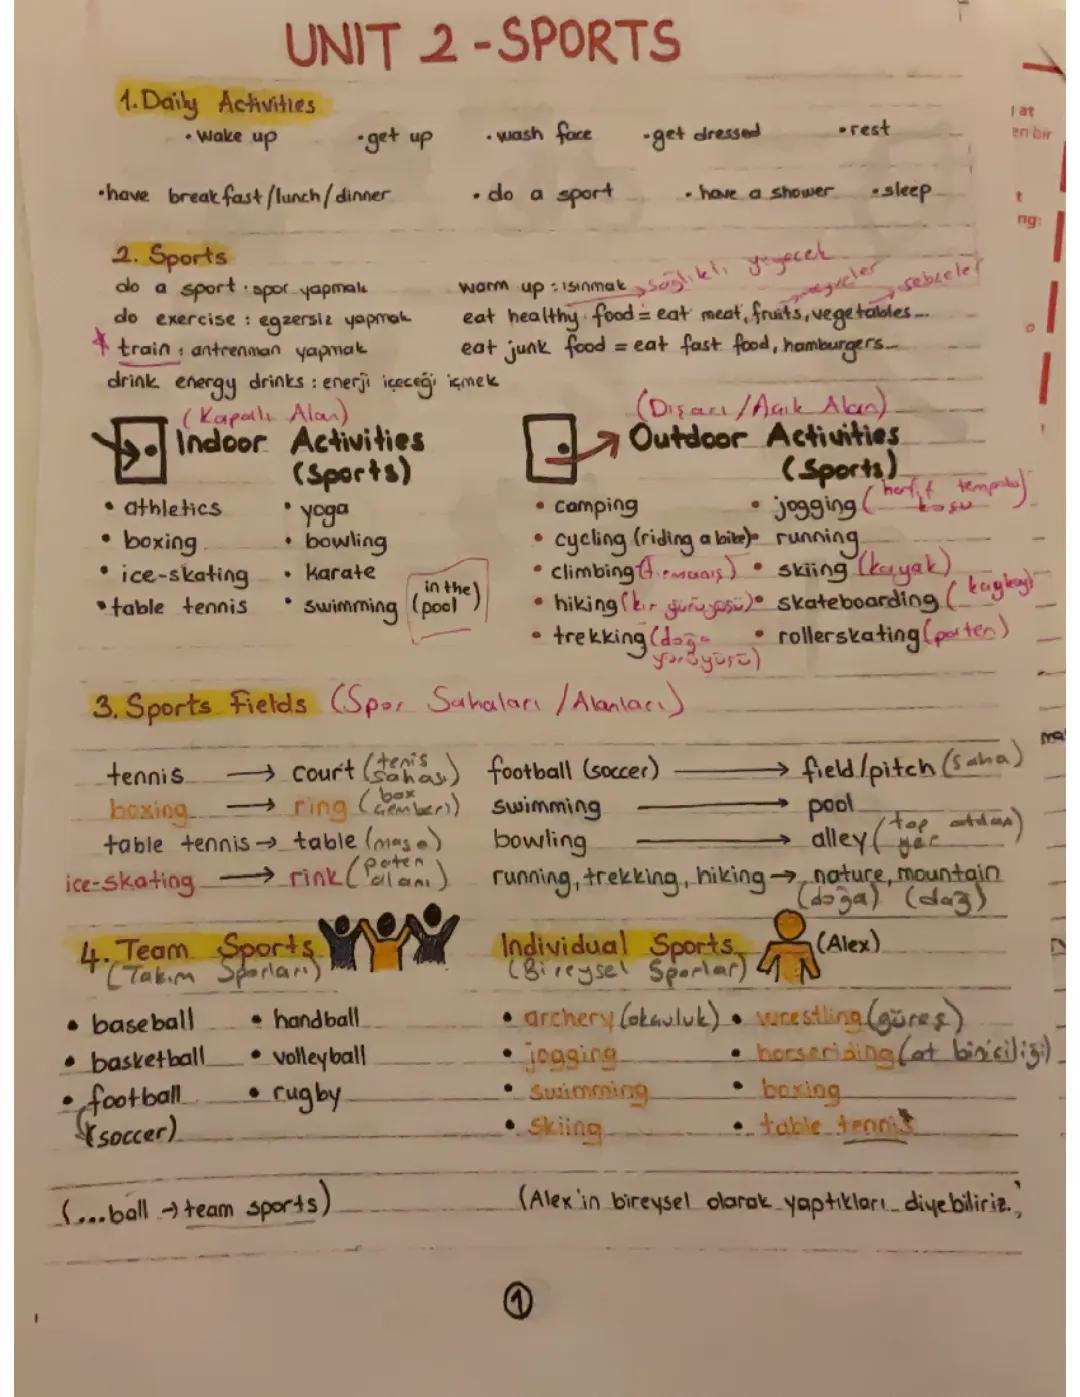 UNIT 2 - SPORTS
1. Daily Activities
• wake up • get up • wash face • get dressed • rest
• have breakfast/lunch/dinner • do a sport • have a shower • sleep
2. Sports
do a sport : spor yapmak
do exercise : egzersiz yapmak
train : antrenman yapmak
drink energy drinks : enerji içeceği içmek
warm up : ısınmak
sağlıklı yiyecek
meyveler
sebzeler
eat healthy food = eat meat, fruits, vegetables...
eat junk food = eat fast food, hamburgers...
(Kapalı Alan)
Indoor Activities
(Sports)
• athletics • yoga
• boxing • bowling
• ice-skating • karate
• table tennis • swimming (in the pool)
(Dışarı/Açık Alan)
Outdoor Activities
(Sports)
• camping • jogging (hafif tempolu koşu)
• cycling (riding a bike) • running
• climbing (tırmanış) • skiing (kayak)
• hiking (kır yürüyüşü) • skateboarding (kaykay)
• trekking (doğa yürüyüşü) • rollerskating (paten)
3. Sports Fields (Spor Sahaları/Alanları)
tennis → court (tenis sahası)
boxing → ring (box çemberi)
table tennis → table (masa)
ice-skating → rink (paten alanı)
football (soccer) → field/pitch (saha)
swimming → pool
bowling → alley (top atılan yer)
running, trekking, hiking → nature, mountain
(doğa) (dağ)
4. Team Sports
(Takım Sporları)
• baseball • handball
• basketball • volleyball
• football • rugby
(soccer)
(...ball → team sports)
Individual Sports (Alex)
(Bireysel Sporlar)
• archery (okçuluk) • wrestling (güreş)
• jogging • horseriding (at biniciliği)
• swimming • boxing
• skiing • table tennis
(Alex'in bireysel olarak yaptıkları diyebiliriz.)
1